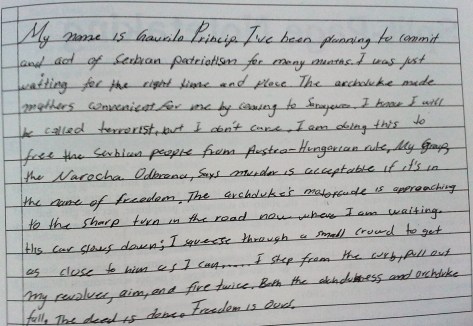 My name is Gavrilo Princip I've been planning to commit
and act of Serbian patriotism for many months. I was just
waiting for the right time and place The archduke made
matters convenient for me by coming to Sarajevo. I know I will
be called terrorist, but I don't care, I am doing this to
free the Serbian people from Austro-Hungarian rule, My Group,
the Narocha Odbrana, says murder is acceptable if it's in
the name of freedom. The archduke's motorcade is approaching
to the sharp turn in the road now where I am waiting.
His car slows down; I squeeze through a small crowd to get
as close to him as I can..... I step from the curb, pull out
my revolver, aim, and fire twice. Both the archduchess and archduke
fall. The deed is done. Freedom is Ours.